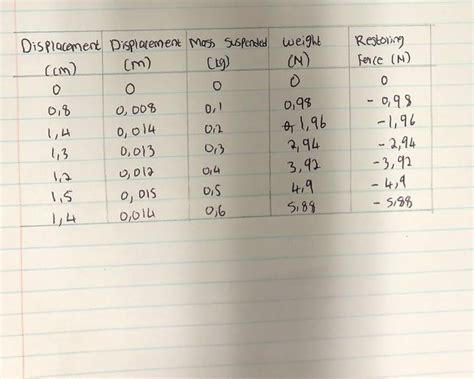 Displacement Displacement Mass suspended Weight Restoring
(cm) (m) (kg) (N) Force (N)
0 0 0 0 0
0,8 0,008 0,1 0,98 - 0,98
1,4 0,014 0,2 1,96 -1,96
1,3 0,013 0,3 2,94 - 2,94
1,2 0,012 0,4 3,92 -3,92
1,5 0,015 0,5 4,9 - 4,9
1,4 0,014 0,6 5,88 - 5,88